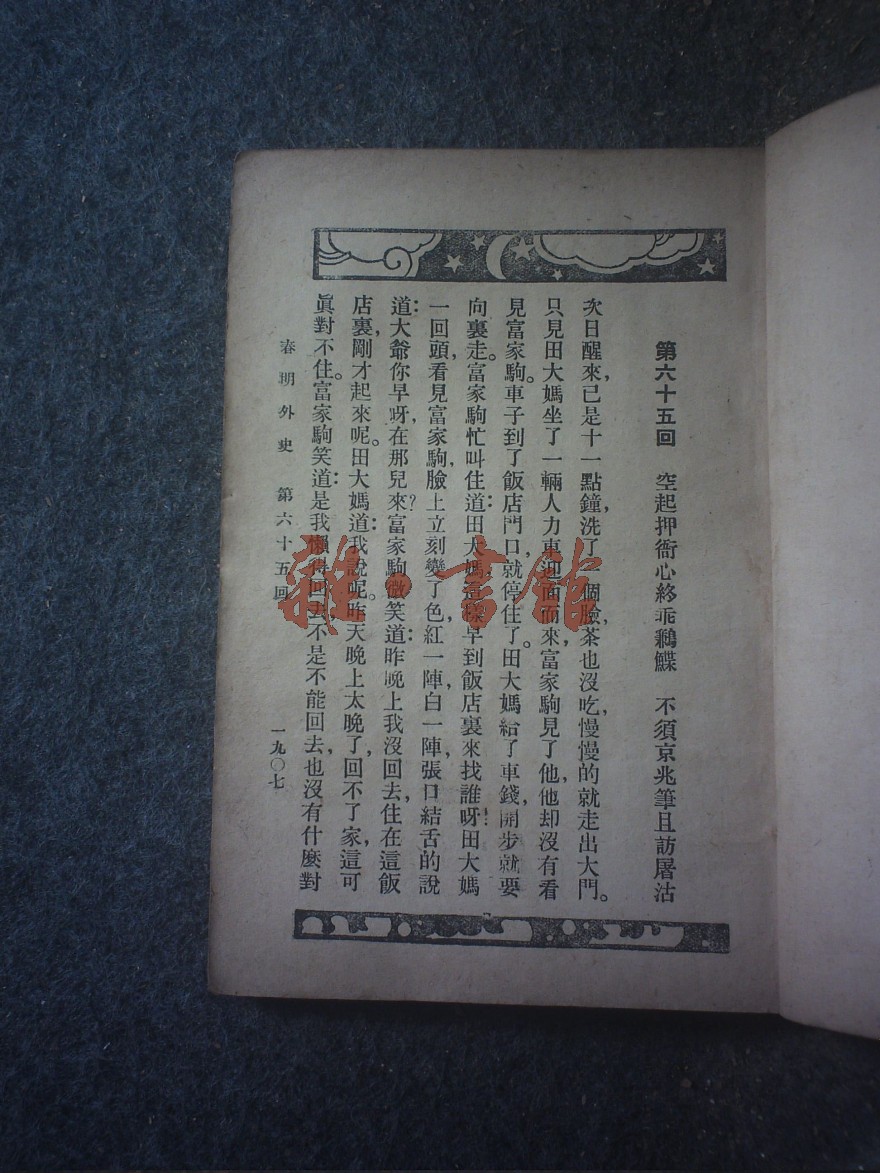 第六十五回　空起押衙心終乖鶼鰈　不須京兆筆且訪屠沽
次日醒來已是十一點鐘，洗了一個臉，茶也沒吃慢慢的就走出大門。
只見田大媽坐了一輛人力車迎面而來，富家駒見了他，他却沒有看
見富家駒。車子到了飯店門口，就停住了。田大媽給了車錢，開步就要
向裏走。富家駒忙叫住道：田大媽，這樣早到飯店裏來找誰呀！田大媽
一回頭，看見富家駒，臉上立刻變了色，紅一陣，白一陣，張口結舌的說
道：大爺你早呀，在那兒來？富家駒微笑道：昨晚上我沒回去，住在這飯
店裏，剛才起來呢。田大媽道：我說呢。昨天晚上太晚了，回不了家，這可
眞對不住。富家駒笑道：是我懶得回去，不是不能回去，也沒有什麼對
春明外史　第六十五回　一九〇七
雜·書館